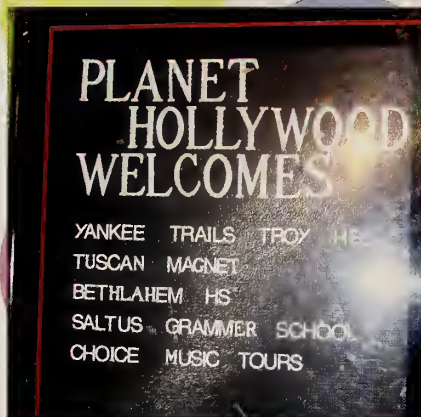 PLANET
HOLLYWOOD
WELCOMES
YANKEE TRAILS TROY HS
TUSCAN MAGNET
BETHLAHEM HS
SALTUS GRAMMER SCHOOL
CHOICE MUSIC TOURS